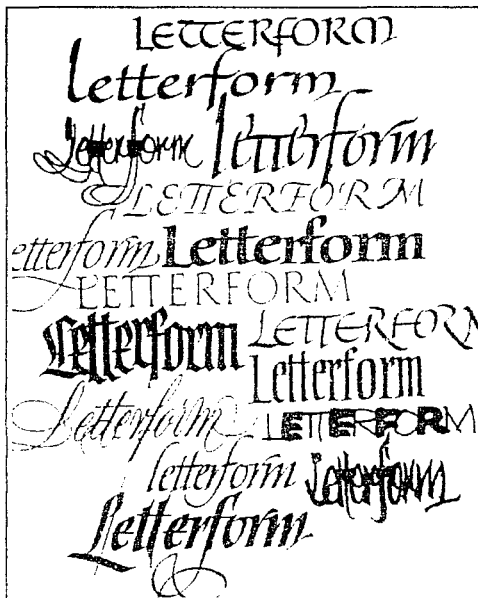 LETTERFORM
letterform
Letterform letterform
LETTERFORM
etterform Letterform
LETTERFORM
Letterform LETTERFORM
Letterform
Letterform LETTERFORM
letterform Letterform
Letterform